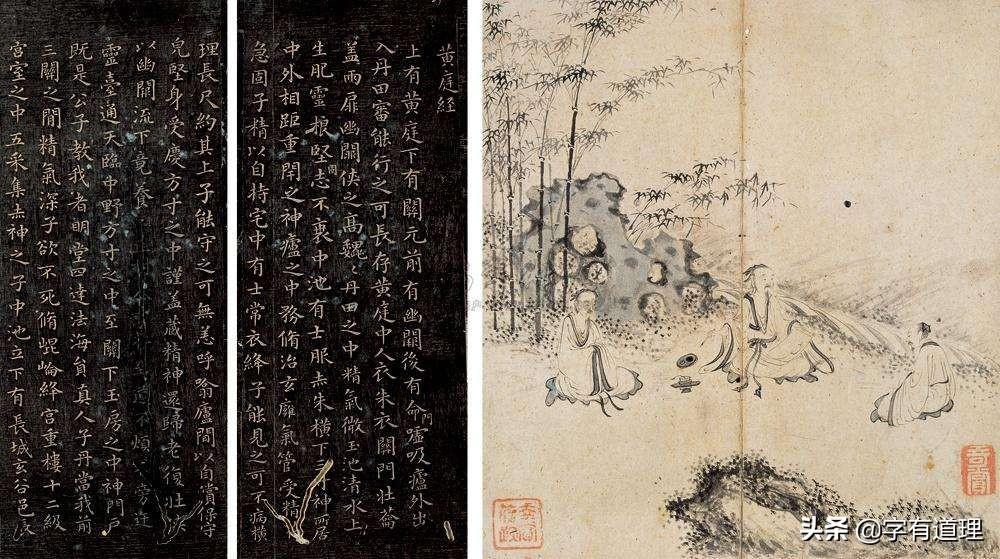 黄庭经
上有黄庭下有關元前有幽闕後有命嘘吸廬外出
入丹田審能行之可長存黄庭中人衣朱衣關門壯蘥
盖兩扉幽闕侠之髙魏魏丹田之中精氣微玉池清水上
生肥靈根堅志不衰中池有士服赤朱横下三寸神所居
中外相距重閇之神廬之中務脩治玄癰氣管受精
急固子精以自持宅中有士常衣絳子能見之可不病横
理長尺約其上子能守之可無恙呼噏廬間以自償保守
皃堅身受慶方寸之中謹盖藏精神還歸老復壯侠
以幽闕流下竟養
靈臺通天臨中野方寸之中至關下玉房之中神門戶
既是公子教我者明堂四達法海負真人子丹當我前
三關之閒精氣深子欲不死脩崐崘絳宫重樓十二級
宫室之中五采集赤神之子中池立下有長城玄谷邑長
头条 @字有道理